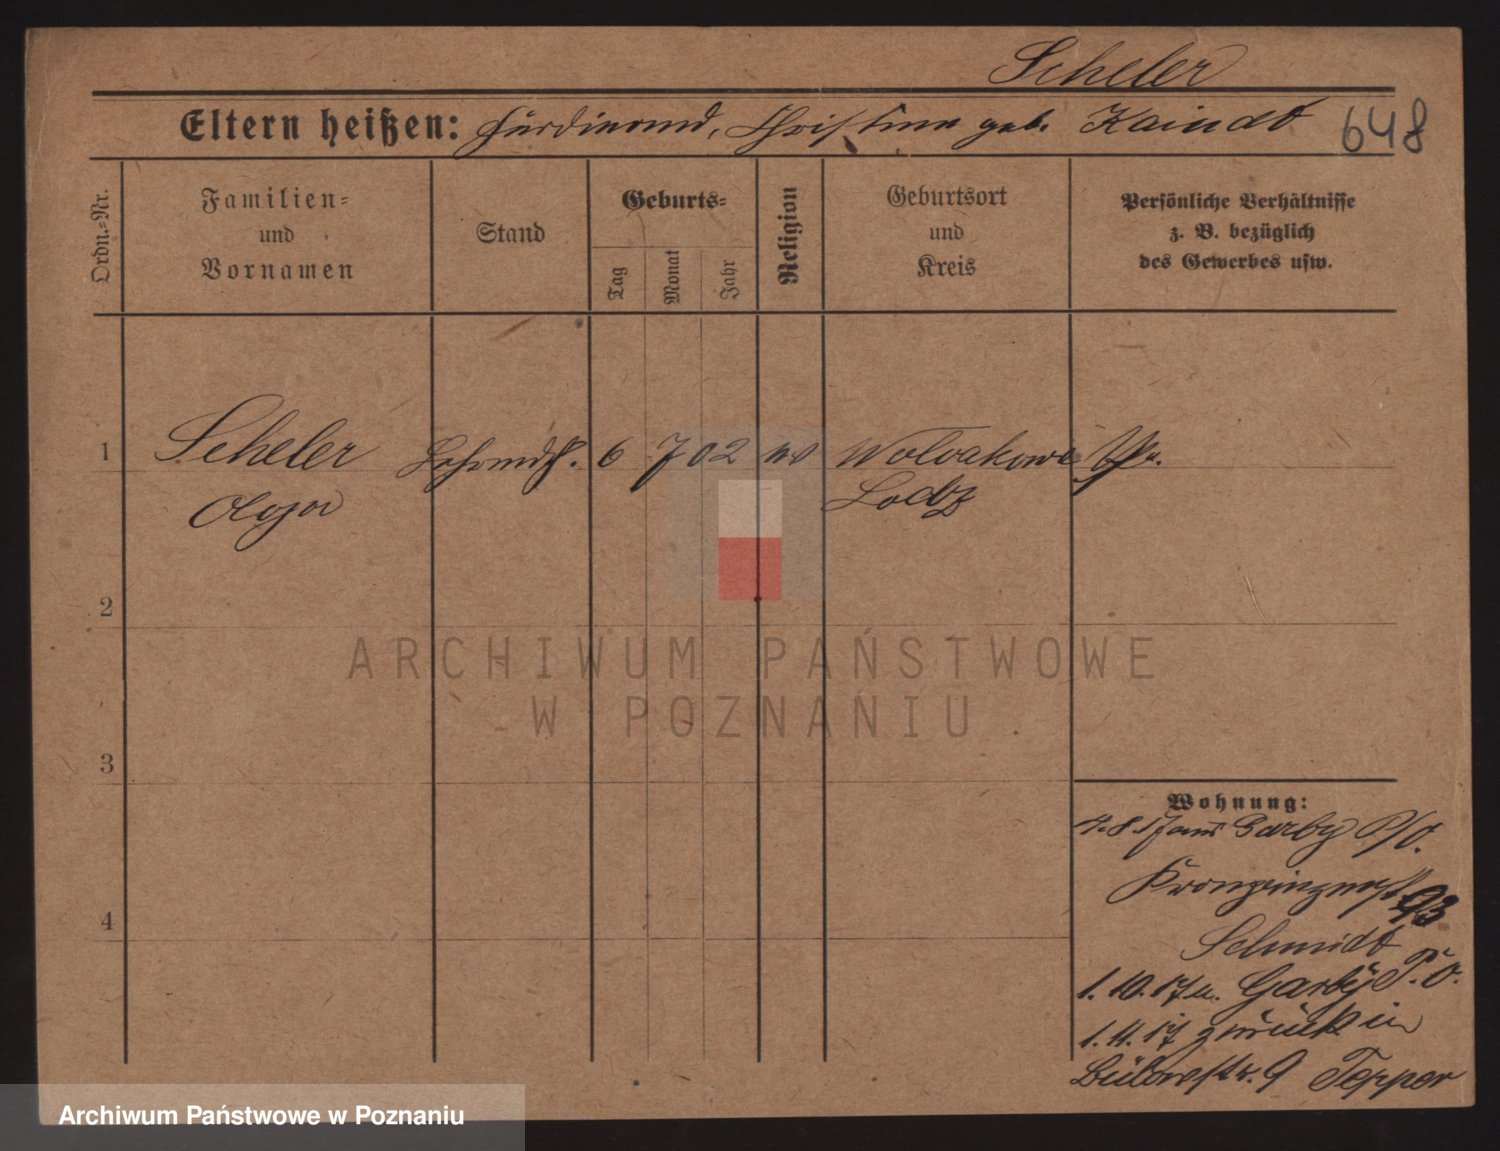 Scheler
Eltern heißen: Ferdinand, Christine geb. Kaindt 648
Ordn.-Nr.
Familien=
und
Vornamen
Stand
Geburts=
Tag
Monat
Jahr
Religion
Geburtsort
und
Kreis
Persönliche Verhältnisse
z. B. bezüglich
des Gewerbes usw.
1 Scheler 6 7 02 ev
Olga Lodz
2
3
4
Wohnung:
4.8.17 aus Garby P/O.
Kronprinzenstr 93
Schmidt
1.10.17 n. Garby P.O.
1.11.17 zurück in
Bülowstr. 9 Tepper
ARCHIWUM PAŃSTWOWE
W POZNANIU
Archiwum Państwowe w Poznaniu